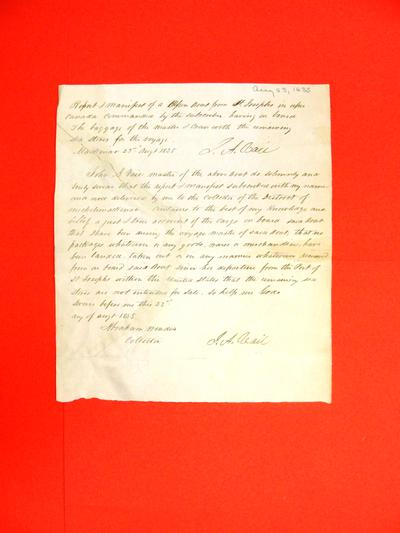 Aug 23, 1835
Report & Manifest of a Open Boat from St Josephs in uper
Canada Commanded by the subscriber having on board
The baggage of the master & Crew with the remaining
sea stores for the voyage
Mackinac 23d Augt 1835 J. A. Cail
John A Cail master of the above boat do solemnly and
truly swear that the report & manifest subscribed with my name
and now delivered by me to the Collector of the District of
Michilimackinac contains to the best of my knowledge and
belief a just & true account of the cargo on board said boat
that there has been during the voyage master of said boat, that no
packages whatsoever or any goods, wares or merchandise have
been landed, taken out or in any manner whatsoever removed
from on board said boat since her departure from the Port of
St Josephs within the United States that the remaining sea
stores are not intended for sale. So help me God
Sworn before me this 23d
day of augt 1835
Abraham Wendell
Collector J. A. Cail